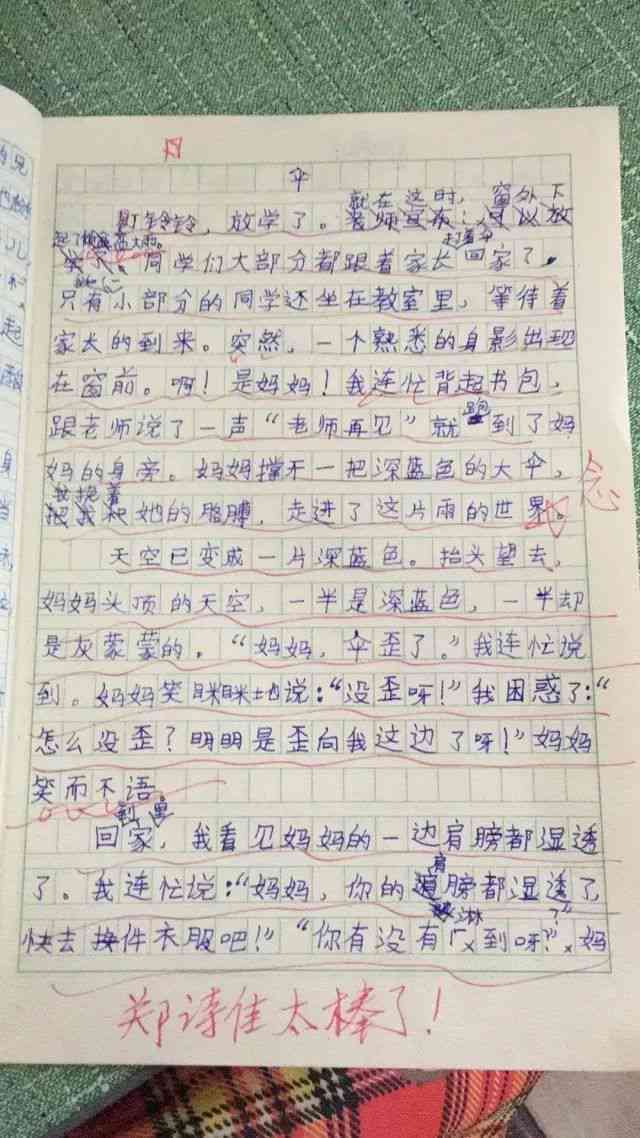 伞
就在这时，窗外下
叮铃铃，放学了。老师宣布：可以放
起了倾盆大雨。 走着伞
学了。同学们大部分都跟着家长回家了，
只有小部分的同学还坐在教室里，等待着
家长的到来。突然，一个熟悉的身影出现
在窗前。啊！是妈妈！我连忙背起书包，
跟老师说了一声“老师再见”就跑到了妈
妈的身旁。妈妈撑开一把深蓝色的大伞，
我挽着
把我和她的胳膊，走进了这片雨的世界。
天空已变成一片深蓝色。抬头望去，
妈妈头顶的天空，一半是深蓝色，一半却
是灰蒙蒙的。“妈妈，伞歪了。”我连忙说
到。妈妈笑眯眯地说：“没歪呀！”我困惑了：“
怎么没歪？明明是歪向我这边了呀！”妈妈
笑而不语。
到 里
回家，我看见妈妈的一边肩膀都湿透
了。我连忙说：“妈妈，你的肩膀都湿透了，
淋 ？”
快去换件衣服吧！”“你有没有到呀？”妈
郑诗佳太棒了！